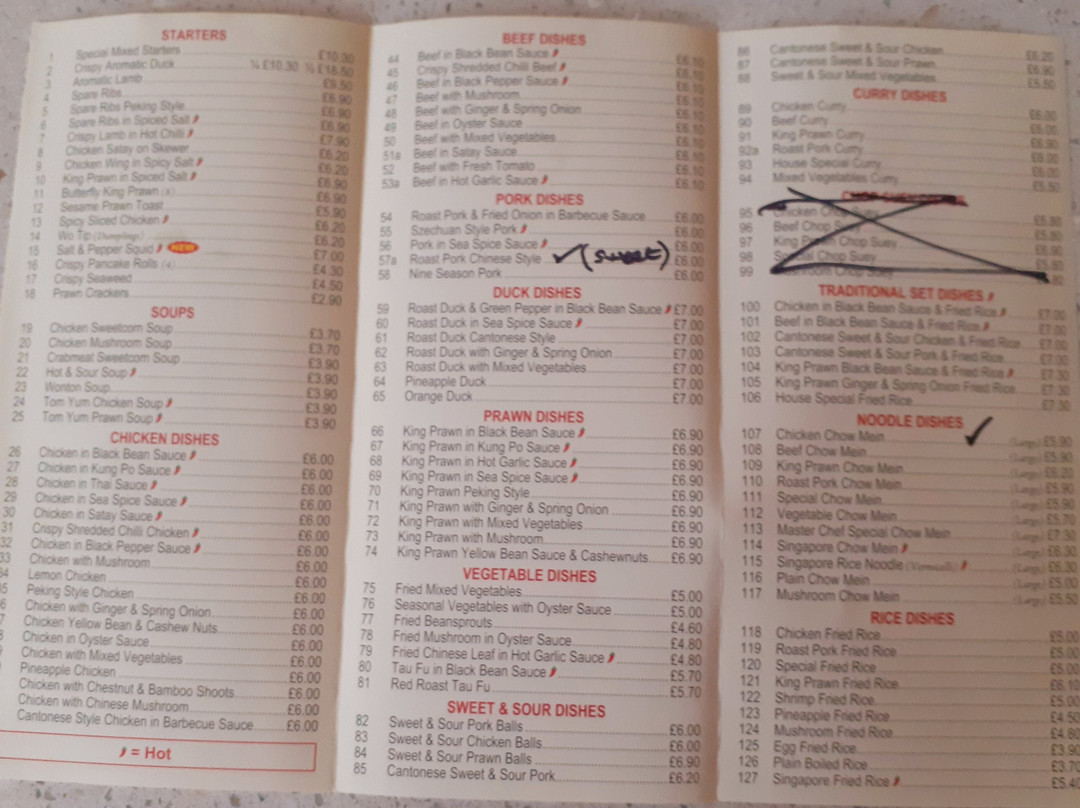 STARTERS
1 Special Mixed Starters £10.30
2 Crispy Aromatic Duck ¼ £10.30 ½ £18.50
3 Aromatic Lamb £9.50
4 Spare Ribs £6.90
5 Spare Ribs Peking Style £6.90
6 Spare Ribs in Spiced Salt £6.90
7 Crispy Lamb in Hot Chilli £7.90
8 Chicken Satay on Skewer £6.20
9 Chicken Wing in Spicy Salt £6.20
10 King Prawn in Spiced Salt £6.90
11 Butterfly King Prawn £6.90
12 Sesame Prawn Toast £5.90
13 Spicy Sliced Chicken £6.20
14 Wo Tip (Dumplings) £6.20
15 Salt & Pepper Squid NEW £7.00
16 Crispy Pancake Rolls (4) £4.30
17 Crispy Seaweed £4.50
18 Prawn Crackers £2.90
SOUPS
19 Chicken Sweetcorn Soup £3.70
20 Chicken Mushroom Soup £3.70
21 Crabmeat Sweetcorn Soup £3.90
22 Hot & Sour Soup £3.90
23 Wonton Soup £3.90
24 Tom Yum Chicken Soup £3.90
25 Tom Yum Prawn Soup £3.90
CHICKEN DISHES
26 Chicken in Black Bean Sauce £6.00
27 Chicken in Kung Po Sauce £6.00
28 Chicken in Thai Sauce £6.00
29 Chicken in Sea Spice Sauce £6.00
30 Chicken in Satay Sauce £6.00
31 Crispy Shredded Chilli Chicken £6.00
32 Chicken in Black Pepper Sauce £6.00
33 Chicken with Mushroom £6.00
Lemon Chicken £6.00
Peking Style Chicken £6.00
Chicken with Ginger & Spring Onion £6.00
Chicken Yellow Bean & Cashew Nuts £6.00
Chicken in Oyster Sauce £6.00
Chicken with Mixed Vegetables £6.00
Pineapple Chicken £6.00
Chicken with Chestnut & Bamboo Shoots £6.00
Chicken with Chinese Mushroom £6.00
Cantonese Style Chicken in Barbecue Sauce £6.00
= Hot
BEEF DISHES
44 Beef in Black Bean Sauce £6.10
45 Crispy Shredded Chilli Beef £6.10
46 Beef in Black Pepper Sauce £6.10
47 Beef with Mushroom £6.10
48 Beef with Ginger & Spring Onion £6.10
49 Beef in Oyster Sauce £6.10
50 Beef with Mixed Vegetables £6.10
51a Beef in Satay Sauce £6.10
52 Beef with Fresh Tomato £6.10
53a Beef in Hot Garlic Sauce £6.10
PORK DISHES
54 Roast Pork & Fried Onion in Barbecue Sauce £6.00
55 Szechuan Style Pork £6.00
56 Pork in Sea Spice Sauce £6.00
57a Roast Pork Chinese Style ✓ (sweet) £6.00
58 Nine Season Pork £6.00
DUCK DISHES
59 Roast Duck & Green Pepper in Black Bean Sauce £7.00
60 Roast Duck in Sea Spice Sauce £7.00
61 Roast Duck Cantonese Style £7.00
62 Roast Duck with Ginger & Spring Onion £7.00
63 Roast Duck with Mixed Vegetables £7.00
64 Pineapple Duck £7.00
65 Orange Duck £7.00
PRAWN DISHES
66 King Prawn in Black Bean Sauce £6.90
67 King Prawn in Kung Po Sauce £6.90
68 King Prawn in Hot Garlic Sauce £6.90
69 King Prawn in Sea Spice Sauce £6.90
70 King Prawn Peking Style £6.90
71 King Prawn with Ginger & Spring Onion £6.90
72 King Prawn with Mixed Vegetables £6.90
73 King Prawn with Mushroom £6.90
74 King Prawn Yellow Bean Sauce & Cashewnuts £6.90
VEGETABLE DISHES
75 Fried Mixed Vegetables £5.00
76 Seasonal Vegetables with Oyster Sauce £5.00
77 Fried Beansprouts £4.60
78 Fried Mushroom in Oyster Sauce £4.80
79 Fried Chinese Leaf in Hot Garlic Sauce £4.80
80 Tau Fu in Black Bean Sauce £5.70
81 Red Roast Tau Fu £5.70
SWEET & SOUR DISHES
82 Sweet & Sour Pork Balls £6.00
83 Sweet & Sour Chicken Balls £6.00
84 Sweet & Sour Prawn Balls £6.90
85 Cantonese Sweet & Sour Pork £6.20
86 Cantonese Sweet & Sour Chicken £6.20
87 Cantonese Sweet & Sour Prawn £6.90
88 Sweet & Sour Mixed Vegetables £5.50
CURRY DISHES
89 Chicken Curry £6.00
90 Beef Curry £6.00
91 King Prawn Curry £6.90
92a Roast Pork Curry £6.00
93 House Special Curry £6.00
94 Mixed Vegetables Curry £5.50
95 Chicken Chop Suey £5.80
96 Beef Chop Suey £5.80
97 King Prawn Chop Suey £6.90
98 Special Chop Suey £5.80
99 Chop Suey
TRADITIONAL SET DISHES
100 Chicken in Black Bean Sauce & Fried Rice £7.00
101 Beef in Black Bean Sauce & Fried Rice £7.00
102 Cantonese Sweet & Sour Chicken & Fried Rice £7.00
103 Cantonese Sweet & Sour Pork & Fried Rice £7.00
104 King Prawn Black Bean Sauce & Fried Rice £7.30
105 King Prawn Ginger & Spring Onion Fried Rice £7.30
106 House Special Fried Rice £7.30
NOODLE DISHES
107 Chicken Chow Mein ✓ (Large) £5.90
108 Beef Chow Mein (Large) £5.90
109 King Prawn Chow Mein (Large) £6.20
110 Roast Pork Chow Mein (Large) £5.90
111 Special Chow Mein (Large) £5.90
112 Vegetable Chow Mein (Large) £5.70
113 Master Chef Special Chow Mein (Large) £7.30
114 Singapore Chow Mein (Large) £6.30
115 Singapore Rice Noodle (Vermicelli) (Large) £6.30
116 Plain Chow Mein (Large) £5.00
117 Mushroom Chow Mein (Large) £5.50
RICE DISHES
118 Chicken Fried Rice £5.00
119 Roast Pork Fried Rice £5.00
120 Special Fried Rice £5.00
121 King Prawn Fried Rice £6.10
122 Shrimp Fried Rice £5.00
123 Pineapple Fried Rice £4.50
124 Mushroom Fried Rice £4.60
125 Egg Fried Rice £3.90
126 Plain Boiled Rice £3.70
127 Singapore Fried Rice £5.40